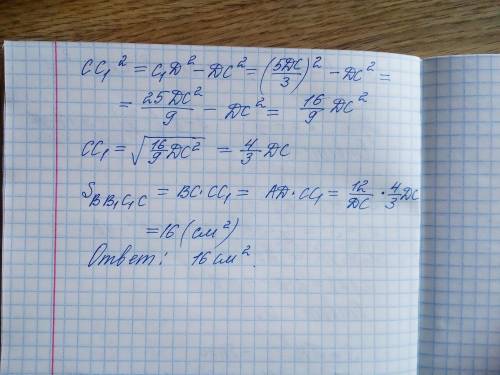 CC₁² = C₁D² − DC² = (5DC/3)² − DC² =
= 25DC²/9 − DC² = 16/9 DC²
CC₁ = √(16/9 DC²) = 4/3 DC
S_BB₁C₁C = BC·CC₁ = AD·CC₁ = 12/DC · 4/3 DC
= 16 (см²)
Ответ: 16 см².